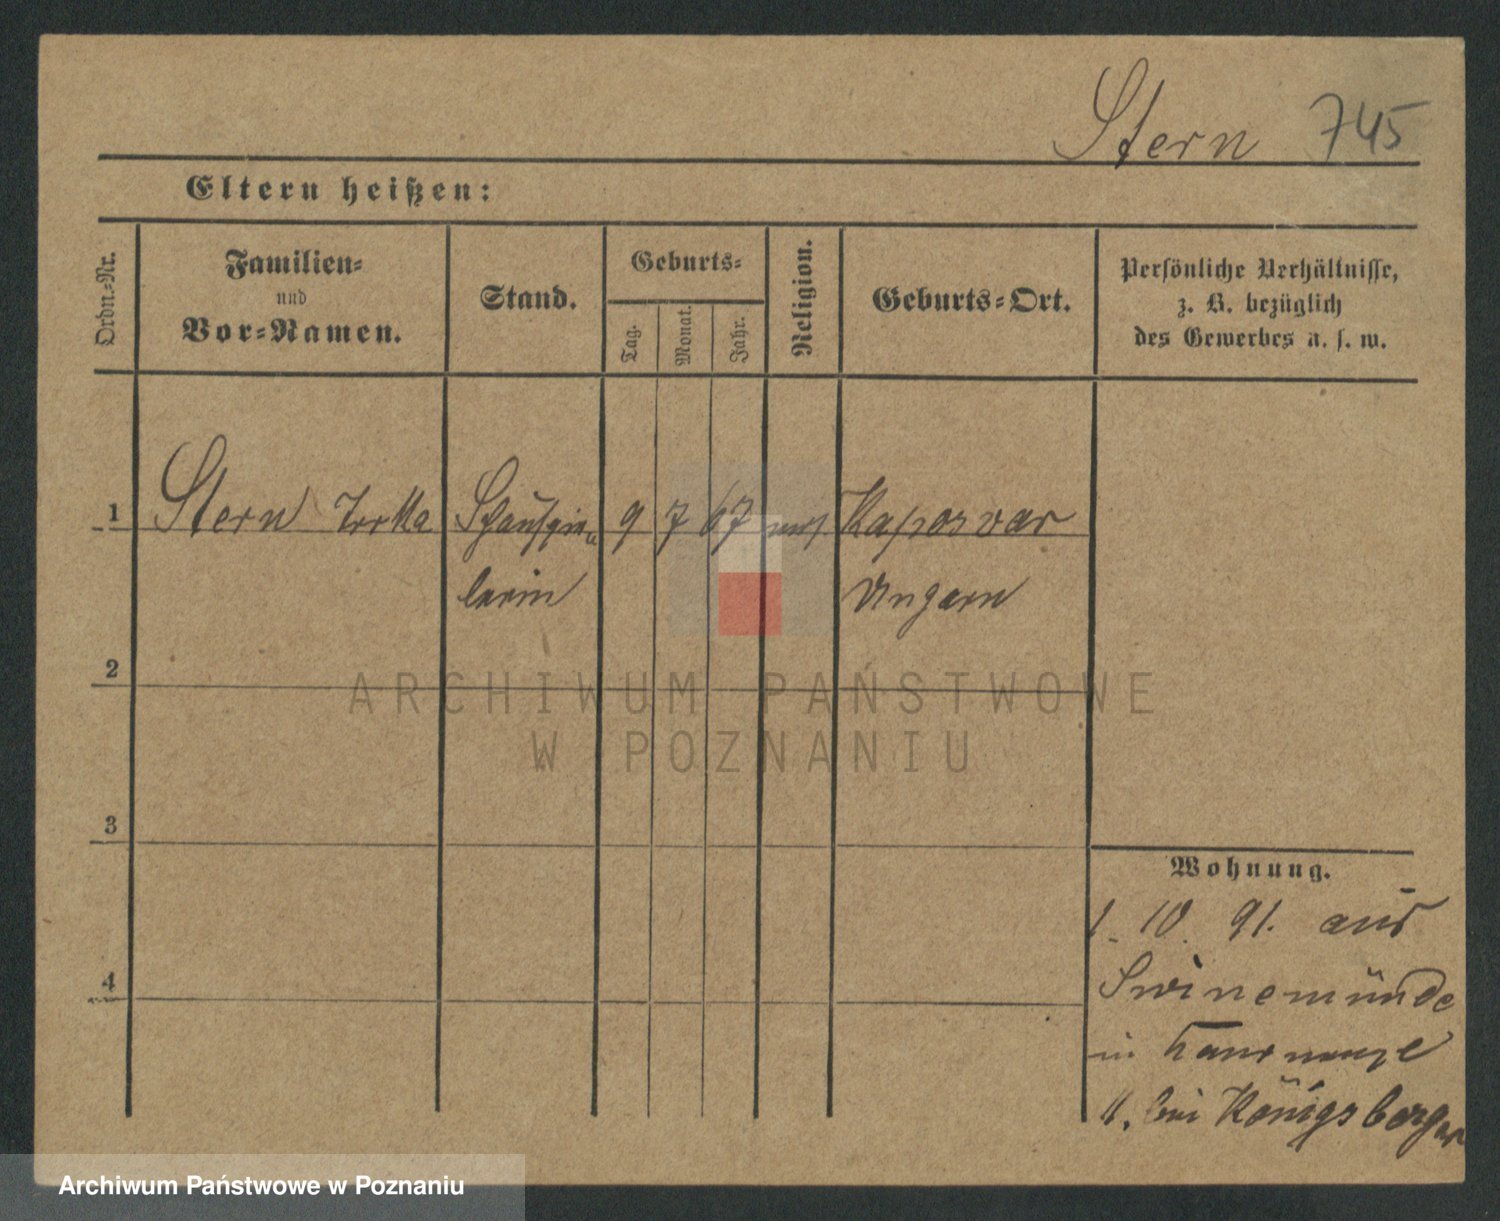 Stern 745
Eltern heißen:
Ordn.-Nr.
Familien-
und
Vor-Namen.
Stand.
Geburts-
Tag.
Monat.
Jahr.
Religion.
Geburts-Ort.
Persönliche Verhältnisse,
z. B. bezüglich
des Gewerbes u. s. w.
1 Stern Schauspie 9 7 67 Kaposvar
lerin Ungarn
2
ARCHIWUM PAŃSTWOWE
W POZNANIU
3
Wohnung.
1. 10. 91. aus
4
Swinemünde
in
bei Königsberger
Archiwum Państwowe w Poznaniu